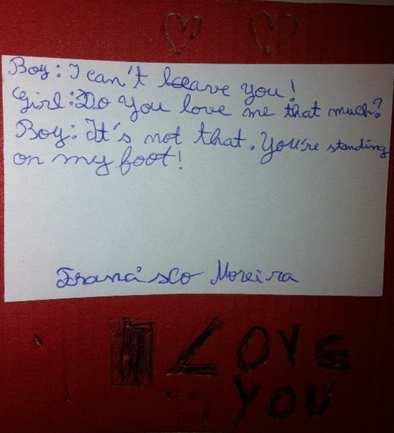 Boy: I can't leave you!
Girl: Do you love me that much?
Boy: It's not that. You're standing
on my foot!
Francisco Moreira
I LOVE
YOU